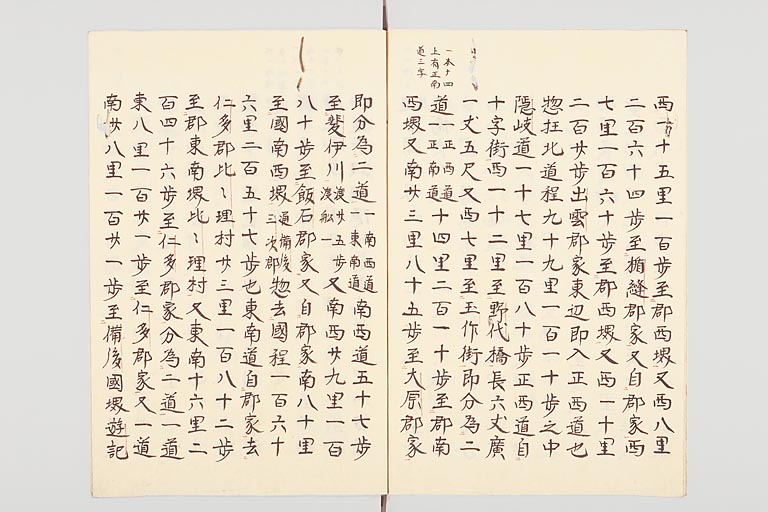 一本十四
上有正南
道三字
西廿十五里一百歩至郡西堺又西八里
二百六十四歩至楯縫郡家又自郡家西
七里一百六十歩至郡西堺又西一十里
二百廿歩出雲郡家東辺即入正西道也
惣抂北道程九十九里一百一十歩之中
隠岐道一十七里一百八十歩正西道自
十字街西一十二里至野代橋長六丈廣
一丈五尺又西七里至玉作街即分為二
道一正西道一正南道十四里二百一十歩至郡南
西堺又南廿三里八十五歩至大原郡家
即分為二道一南西道一東南道南西道五十七歩
至斐伊川渡廿五歩渡舩一又南西廿九里一百
八十歩至飯石郡家又自郡家南八十里
至國南西堺通備後三次郡惣去國程一百六十
六里二百五十七歩也東南道自郡家去
仁多郡比〻理村廿三里一百八十二歩
至郡東南堺比〻理村又東南十六里二
百四十六歩至仁多郡家分為二道一道
東八里一百廿一歩至仁多郡家又一道
南廿八里一百廿一歩至備後國堺遊記